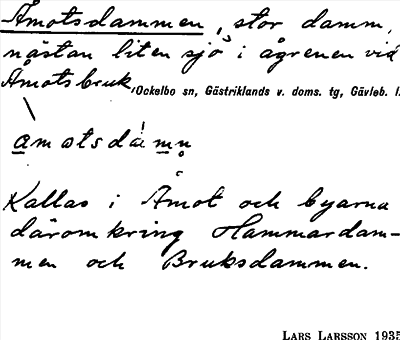 Åmotsdammen, stor damm,
nästan liten sjö i ågrenen vid
Åmotsbruk, Ockelbo sn, Gästriklands v. doms. tg, Gävleb. l.
amotsdámn
Kallas i Åmot och byarna
däromkring Hammardam-
men och Bruksdammen.
LARS LARSSON 1935